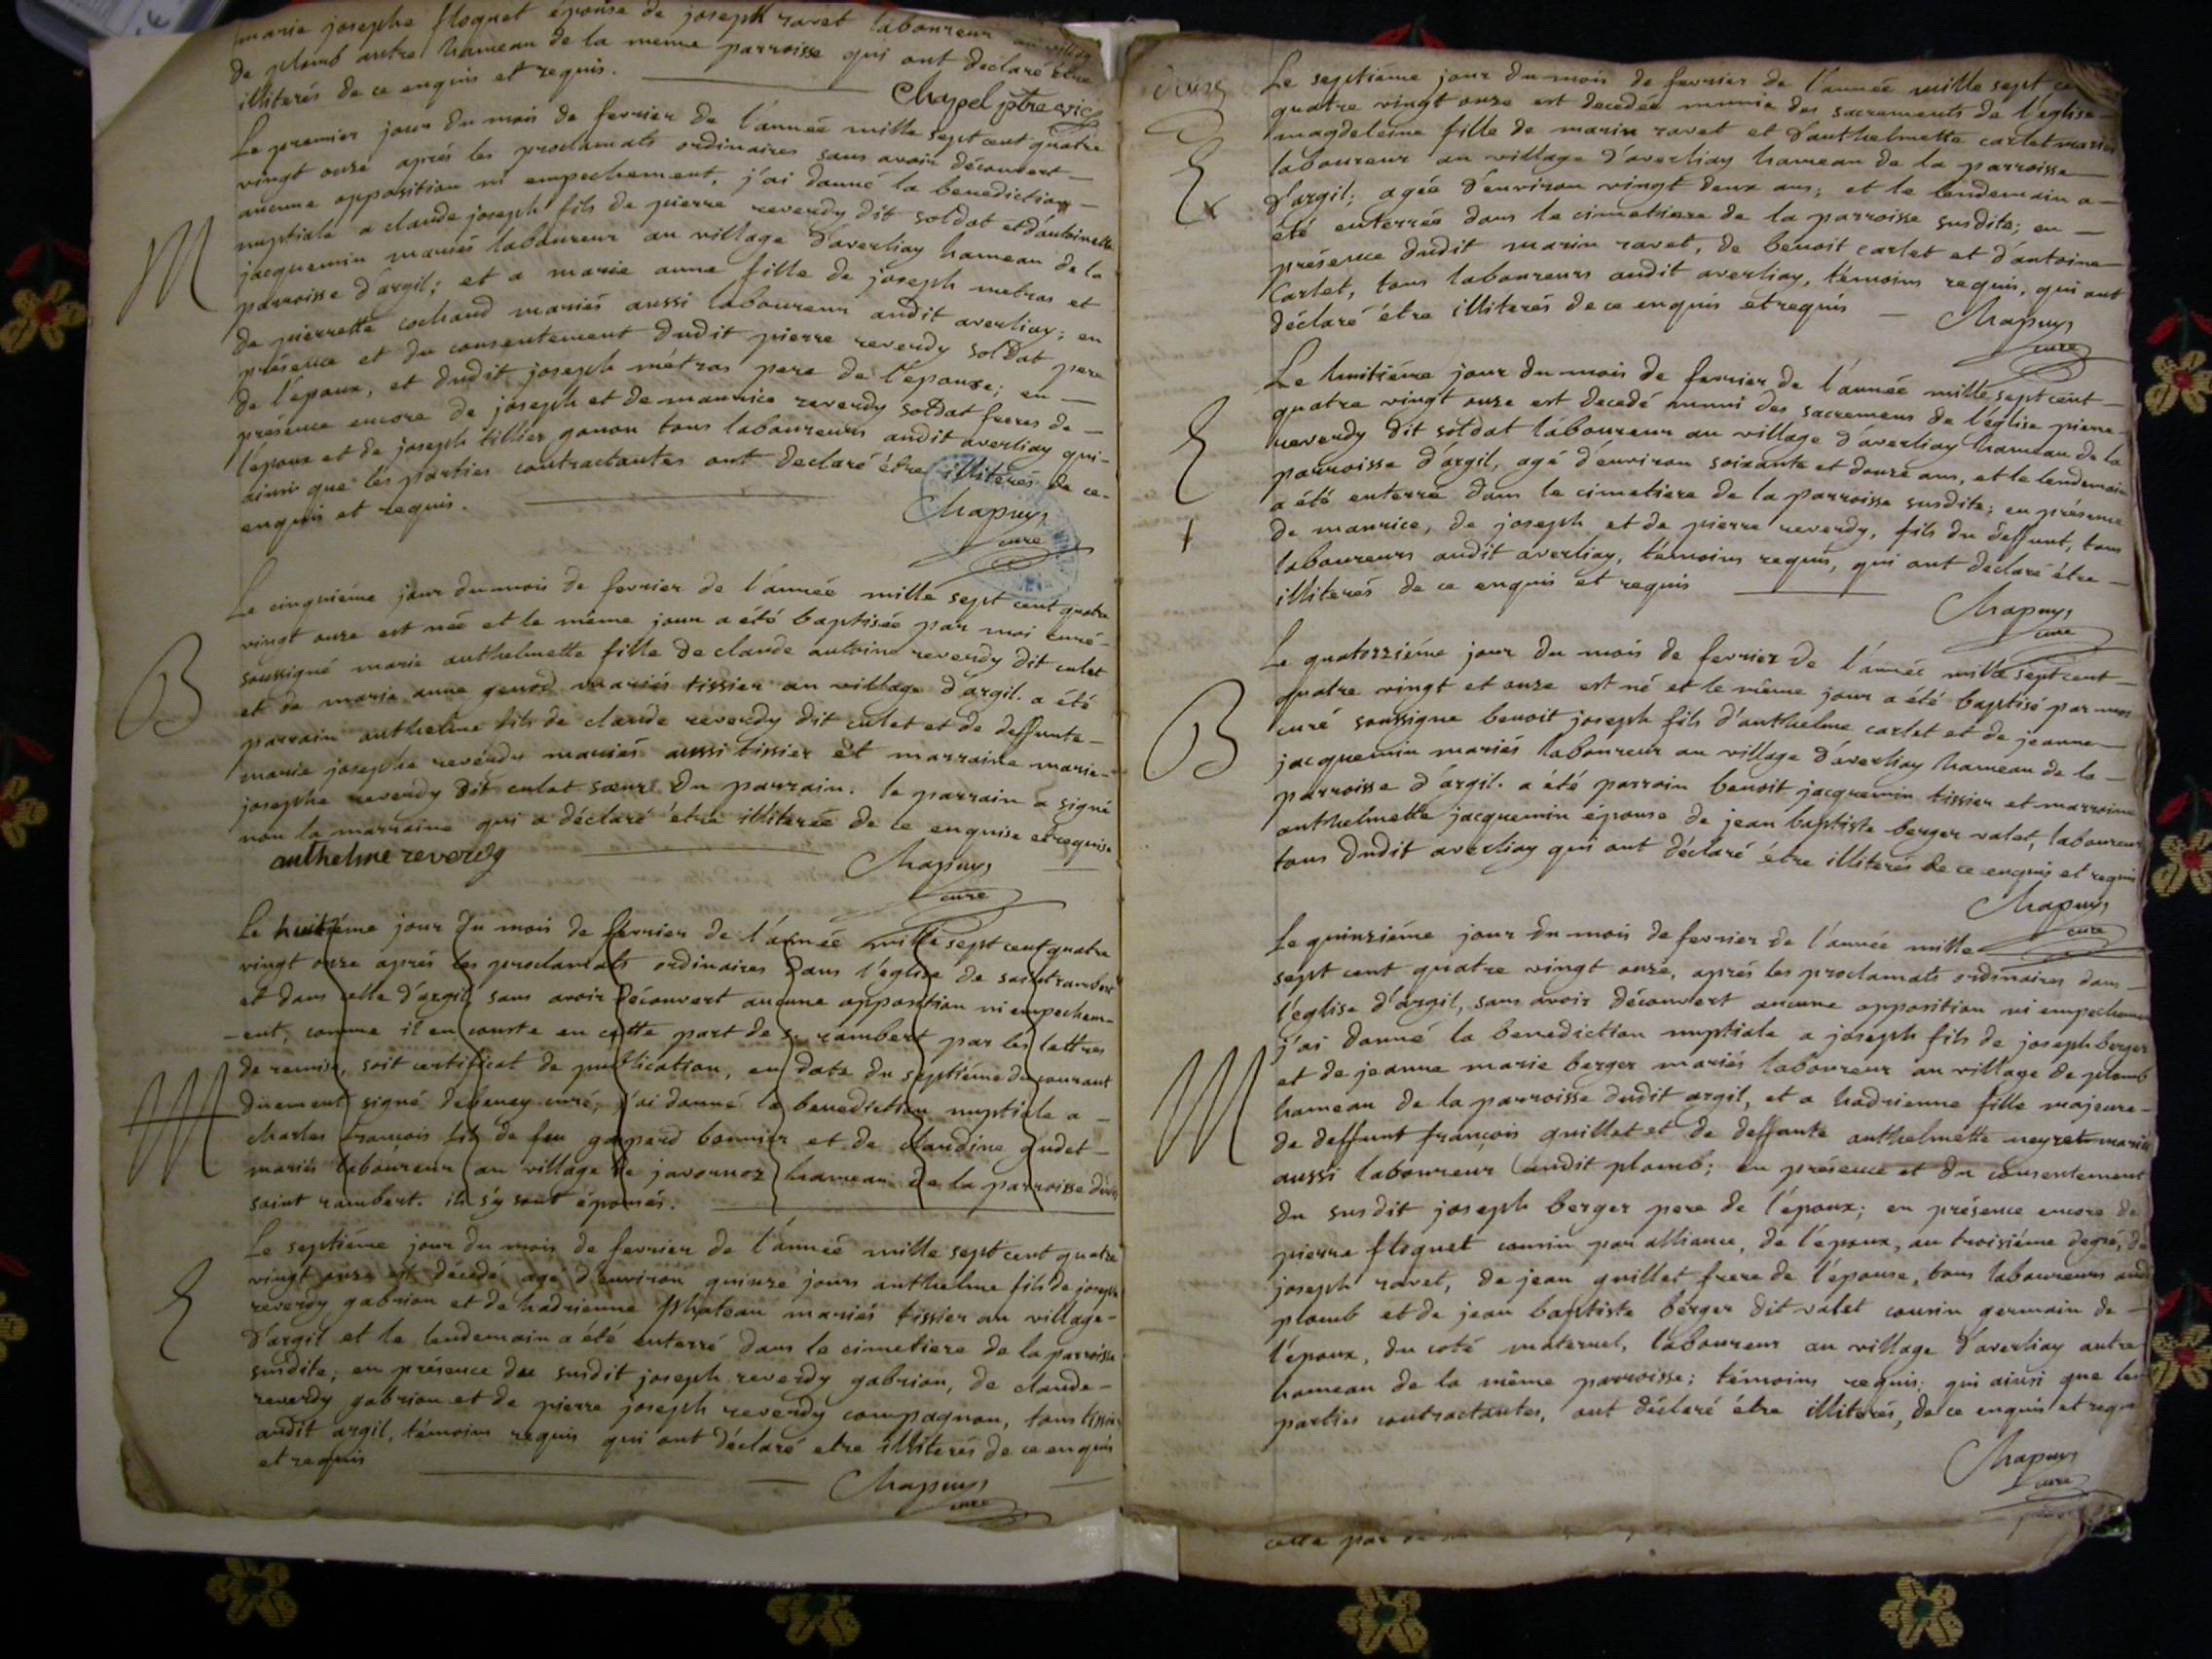 marie josephe floquet épouse de joseph ravet laboureur au village
de plomb autre hameau de la meme parroisse qui ont declaré être
illiterés de ce enquis et requis.
Chapel ptre vic
Le premier jour du mois de fevrier de l'année mille sept cent quatre
vingt onze aprés les proclamats ordinaires sans avoir découvert
aucune opposition ni empechement, j'ai donné la benediction
nuptiale a claude joseph fils de pierre reverdy dit soldat et d'antoinette
M
jacquemin mariés laboureur au village d'averliay hameau de la
parroisse d'argil; et a marie anne fille de joseph metras et
de pierrette cochand mariés aussi laboureur audit averliay; en
présence et du consentement dudit pierre reverdy soldat pere
de l'époux, et dudit joseph métras pere de l'épouse; en
présence encore de joseph et de maurice reverdy soldat freres de
l'époux et de joseph tillier gonon tous laboureurs audit averliay qui
ainsi que les parties contractantes ont declaré être illiterés de ce
enquis et requis.
Chapuys
curé
Le cinquiéme jour du mois de fevrier de l'année mille sept cent quatre
vingt onze est née et le même jour a été baptisée par moi curé
soussigné marie anthelmette fille de claude antoine reverdy dit culet
B
et de marie anne genod mariés tissier au village d'argil. a été
parrain anthelme fils de claude reverdy dit culet et de deffunte
marie josephe reverdy mariés aussi tissier et marraine marie
josephe reverdy dit culet sœur du parrain. le parrain a signé
non la marraine qui a déclaré être illiterée de ce enquise et requise
anthelme reverdy
Chapuys
curé
Le huitiéme jour du mois de fevrier de l'année mille sept cent quatre
vingt onze aprés les proclamats ordinaires dans l'eglise de saint rambert
et dans celle d'argil sans avoir découvert aucune opposition ni empechem-
-ent, comme il en conste en cette part de St rambert par les lettres
M
de remise, soit certificat de publication, en date du septiéme du courant
düement signé debeney curé, j'ai donné la benediction nuptiale a
charles françois fils de feu gaspard bonnier et de claudine gudet
mariés laboureur au village de javornoz hameau de la parroisse dudit
saint rambert. ils s'y sont épousés.
Le septiéme jour du mois de fevrier de l'année mille sept cent quatre
vingt onze est décedé agé d'environ quinze jours anthelme fils de joseph
reverdy gabrion et de hadrienne phateau mariés tissier au village
d'argil et le lendemain a été enterré dans le cimetiere de la parroisse
susdite; en présence du susdit joseph reverdy gabrion, de claude
reverdy gabrion et de pierre joseph reverdy compagnon, tous tissiers
audit argil, témoins requis qui ont déclaré etre illiterés de ce enquis
et requis
Chapuys
curé
Le septiéme jour du mois de fevrier de l'année mille sept cent
quatre vingt onze est decedée munie des sacrements de l'eglise
magdeleine fille de marin ravet et d'anthelmette carlet mariés
laboureur au village d'averliay hameau de la parroisse
d'argil; agée d'environ vingt deux ans; et le lendemain a
été enterrée dans le cimetiere de la parroisse susdite; en
présence dudit marin ravet, de benoit carlet et d'antoine
Carlet, tous laboureurs audit averliay, témoins requis, qui ont
déclaré être illiterés de ce enquis et requis
Chapuys
curé
Le huitiéme jour du mois de fevrier de l'année mille sept cent
quatre vingt onze est decedé muni des sacremens de l'église pierre
reverdy dit soldat laboureur au village d'averliay hameau de la
parroisse d'argil, agé d'environ soixante et douze ans, et le lendemain
a été enterré dans le cimetiere de la parroisse susdite; en présence
de maurice, de joseph et de pierre reverdy, fils du deffunt, tous
laboureurs audit averliay, témoins requis, qui ont déclaré être
illiterés de ce enquis et requis
Chapuys
curé
Le quatorziéme jour du mois de fevrier de l'année mille sept cent
quatre vingt et onze est né et le même jour a été baptisé par moi
curé soussigné benoit joseph fils d'anthelme carlet et de jeanne
B
jacquemin mariés laboureur au village d'averliay hameau de la
parroisse d'argil. a été parrain benoit jacquemin tissier et marraine
anthelmette jacquemin épouse de jean baptiste berger valet, laboureur
tous dudit averliay qui ont déclaré être illiterés de ce enquis et requis
Chapuys
curé
Le quinziéme jour du mois de fevrier de l'année mille
sept cent quatre vingt onze, aprés les proclamats ordinaires dans
l'église d'argil, sans avoir découvert aucune opposition ni empechement
j'ai donné la benediction nuptiale a joseph fils de joseph berger
M
et de jeanne marie berger mariés laboureur au village de plomb
hameau de la parroisse dudit argil, et a hadrienne fille majeure
de deffunt françois guillet et de deffunte anthelmette neyret mariés
aussi laboureur audit plomb; en présence et du consentement
du susdit joseph berger pere de l'époux; en présence encore de
pierre floquet cousin par alliance, de l'époux, au troisiéme degré, de
joseph ravet, de jean guillet frere de l'épouse, tous laboureurs audit
plomb et de jean baptiste berger dit valet cousin germain de
l'époux, du coté maternel, laboureur au village d'averliay autre
hameau de la même parroisse; témoins requis; qui ainsi que les
parties contractantes, ont déclaré être illiterés, de ce enquis et requis
Chapuys
curé
cette par